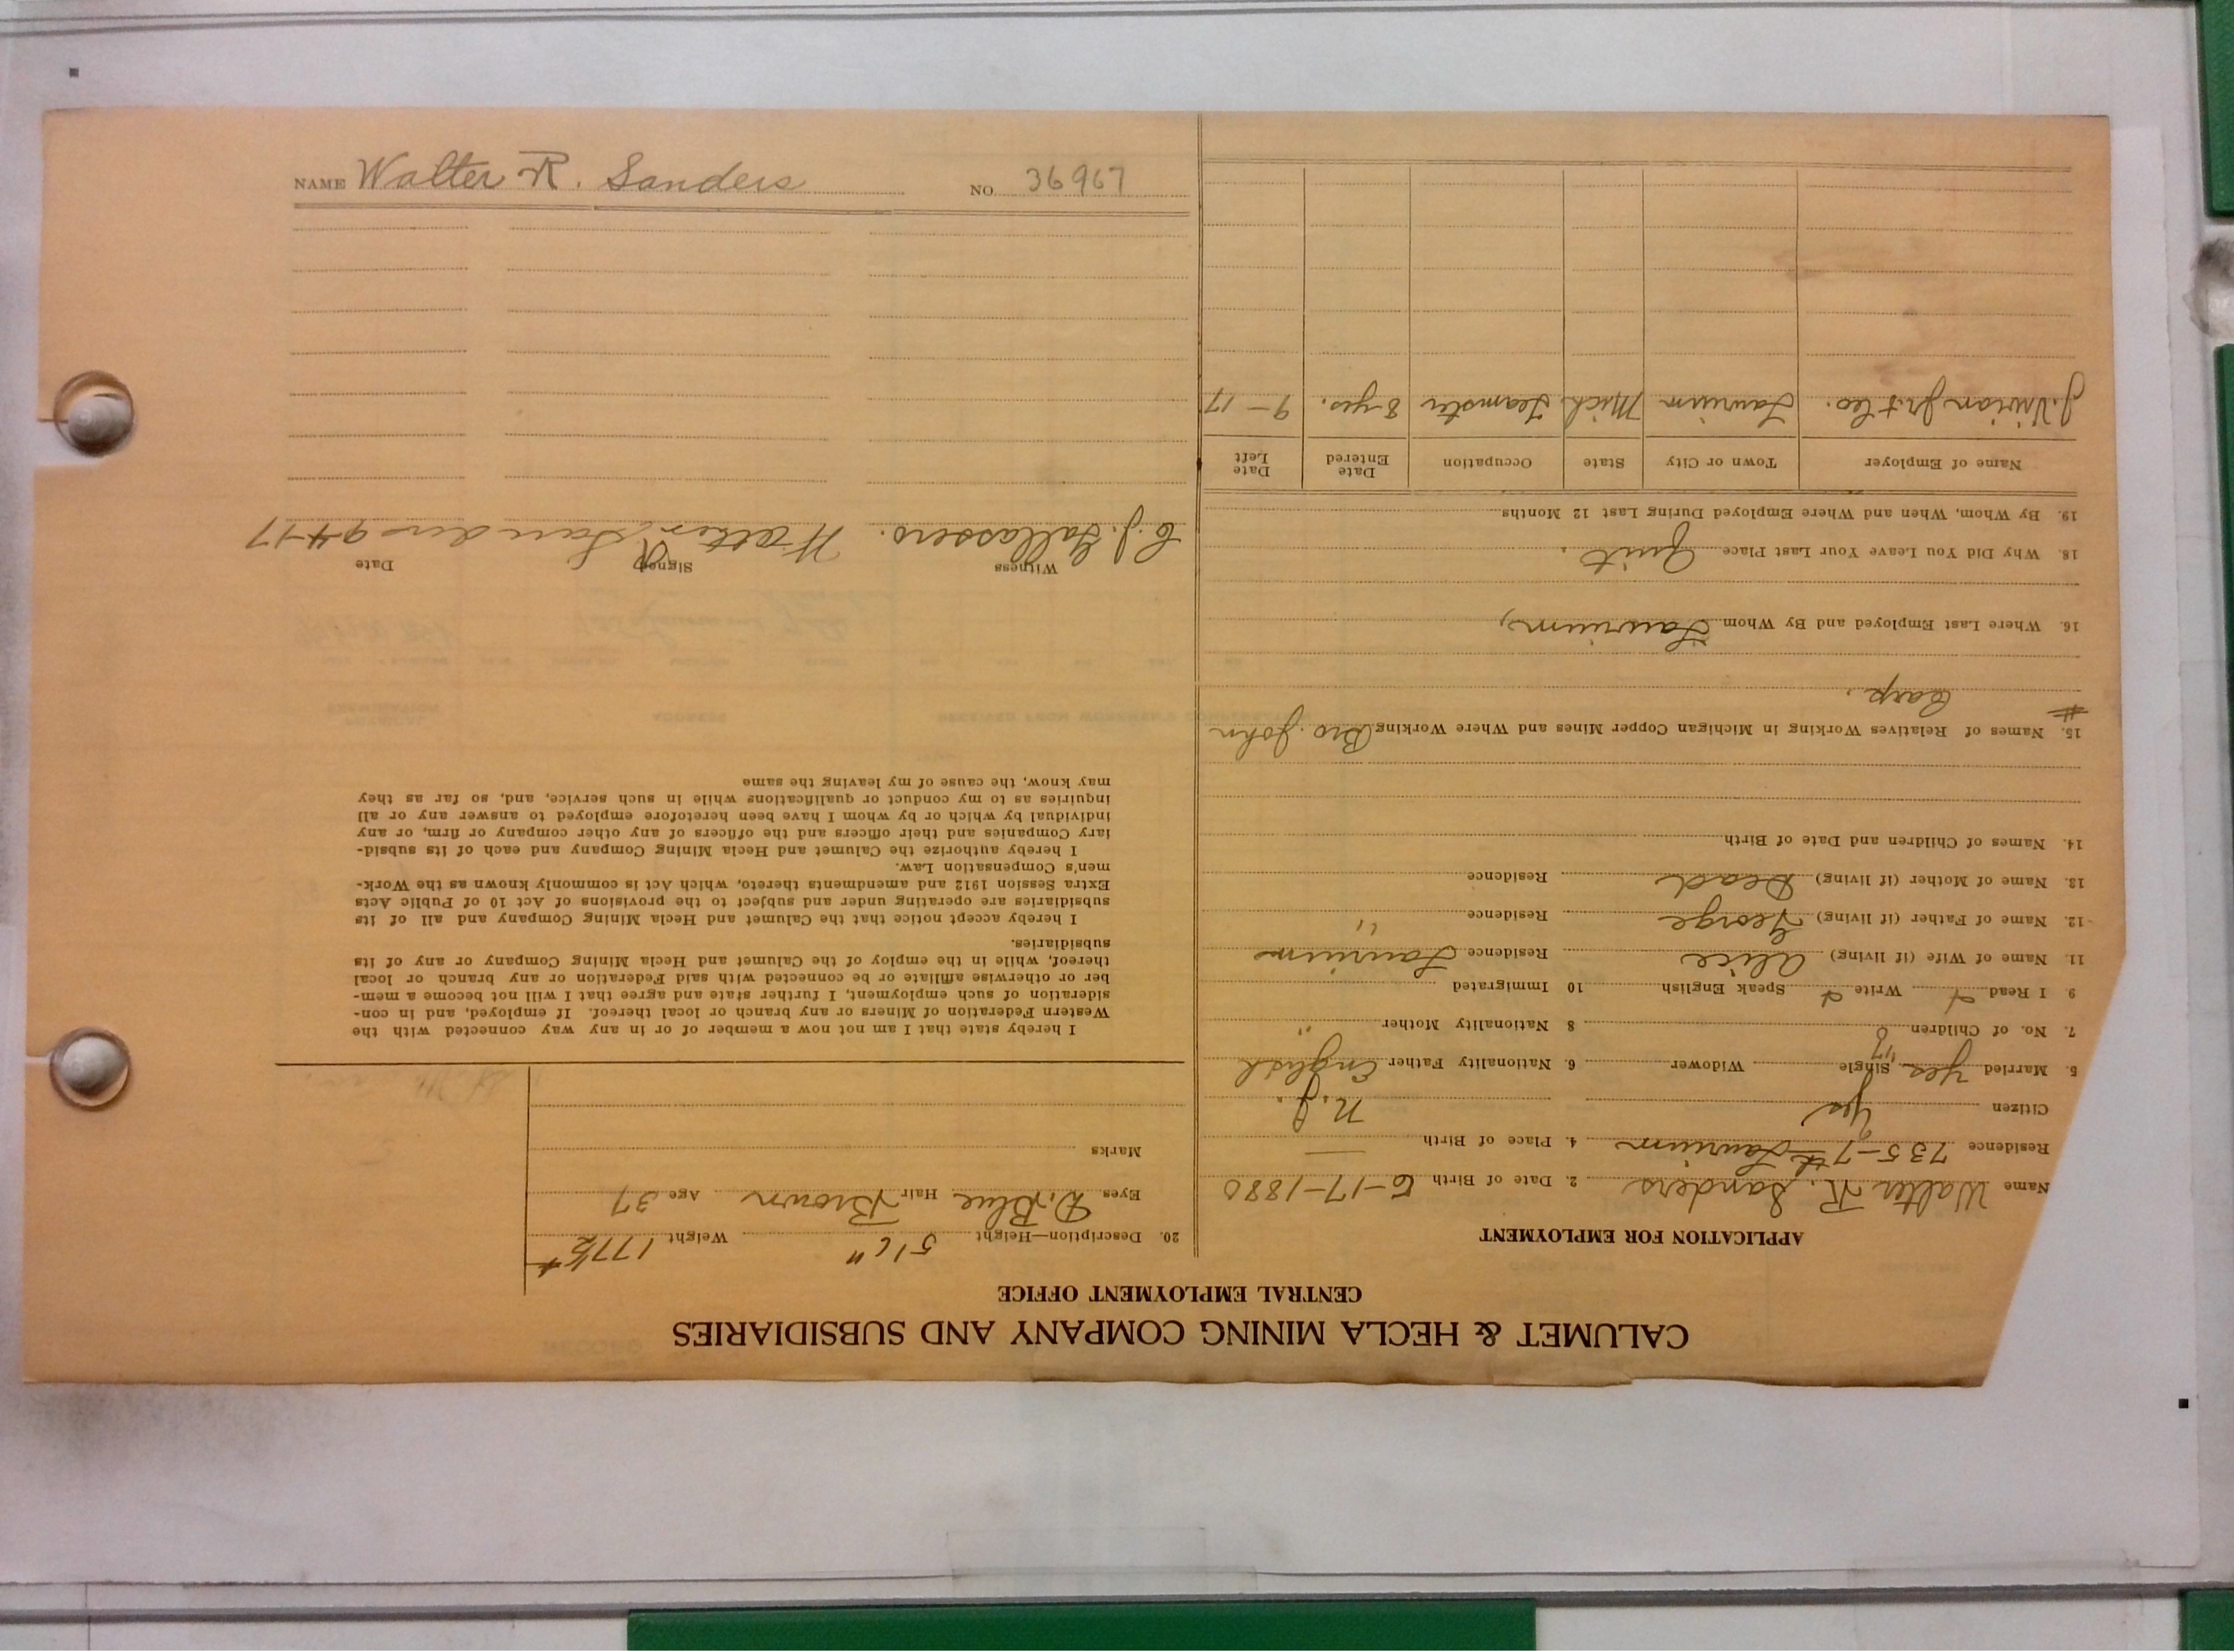 CALUMET & HECLA MINING COMPANY AND SUBSIDIARIES
CENTRAL EMPLOYMENT OFFICE
APPLICATION FOR EMPLOYMENT
Name Walter R. Sanders 2. Date of Birth 6-17-1880
Residence 735-7th Laurium 4. Place of Birth —
Citizen Yes N.J.
5. Married Yes "17 Single Widower 6. Nationality Father English
7. No. of Children 0 8 Nationality Mother "
9. I Read Write Speak English 10 Immigrated
11. Name of Wife (if living) Alice Residence Laurium
12. Name of Father (if living) George Residence "
13. Name of Mother (if living) Dead Residence
14. Names of Children and Date of Birth
15. Names of Relatives Working in Michigan Copper Mines and Where Working Bro. John
# Carp.
16. Where Last Employed and By Whom Laurium,
18. Why Did You Leave Your Last Place Quit.
19. By Whom, When and Where Employed During Last 12 Months
Name of Employer Town or City State Occupation Date Entered Date Left
J. Vivian Jr. & Co. Laurium Mich Teamster 8 yrs. 9-17
20. Description—Height 5'6" Weight 177½#
Eyes D. Blue Hair Brown Age 37
Marks
I hereby state that I am not now a member of or in any way connected with the
Western Federation of Miners or any branch or local thereof. If employed, and in con-
sideration of such employment, I further state and agree that I will not become a mem-
ber or otherwise affiliate or be connected with said Federation or any branch or local
thereof, while in the employ of the Calumet and Hecla Mining Company or any of its
subsidiaries.
I hereby accept notice that the Calumet and Hecla Mining Company and all of its
subsidiaries are operating under and subject to the provisions of Act 10 of Public Acts
Extra Session 1912 and amendments thereto, which Act is commonly known as the Work-
men's Compensation Law.
I hereby authorize the Calumet and Hecla Mining Company and each of its subsid-
iary Companies and their officers and the officers of any other company or firm, or any
individual by which or by whom I have been heretofore employed to answer any or all
inquiries as to my conduct or qualifications while in such service, and, so far as they
may know, the cause of my leaving the same
Witness Signed Date
C. J. Walter R Sanders 9-4-17
NAME Walter R. Sanders NO. 36967